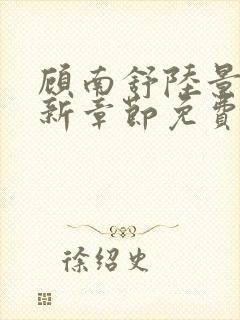 顾南舒陸景
新章節免費
徐绍史